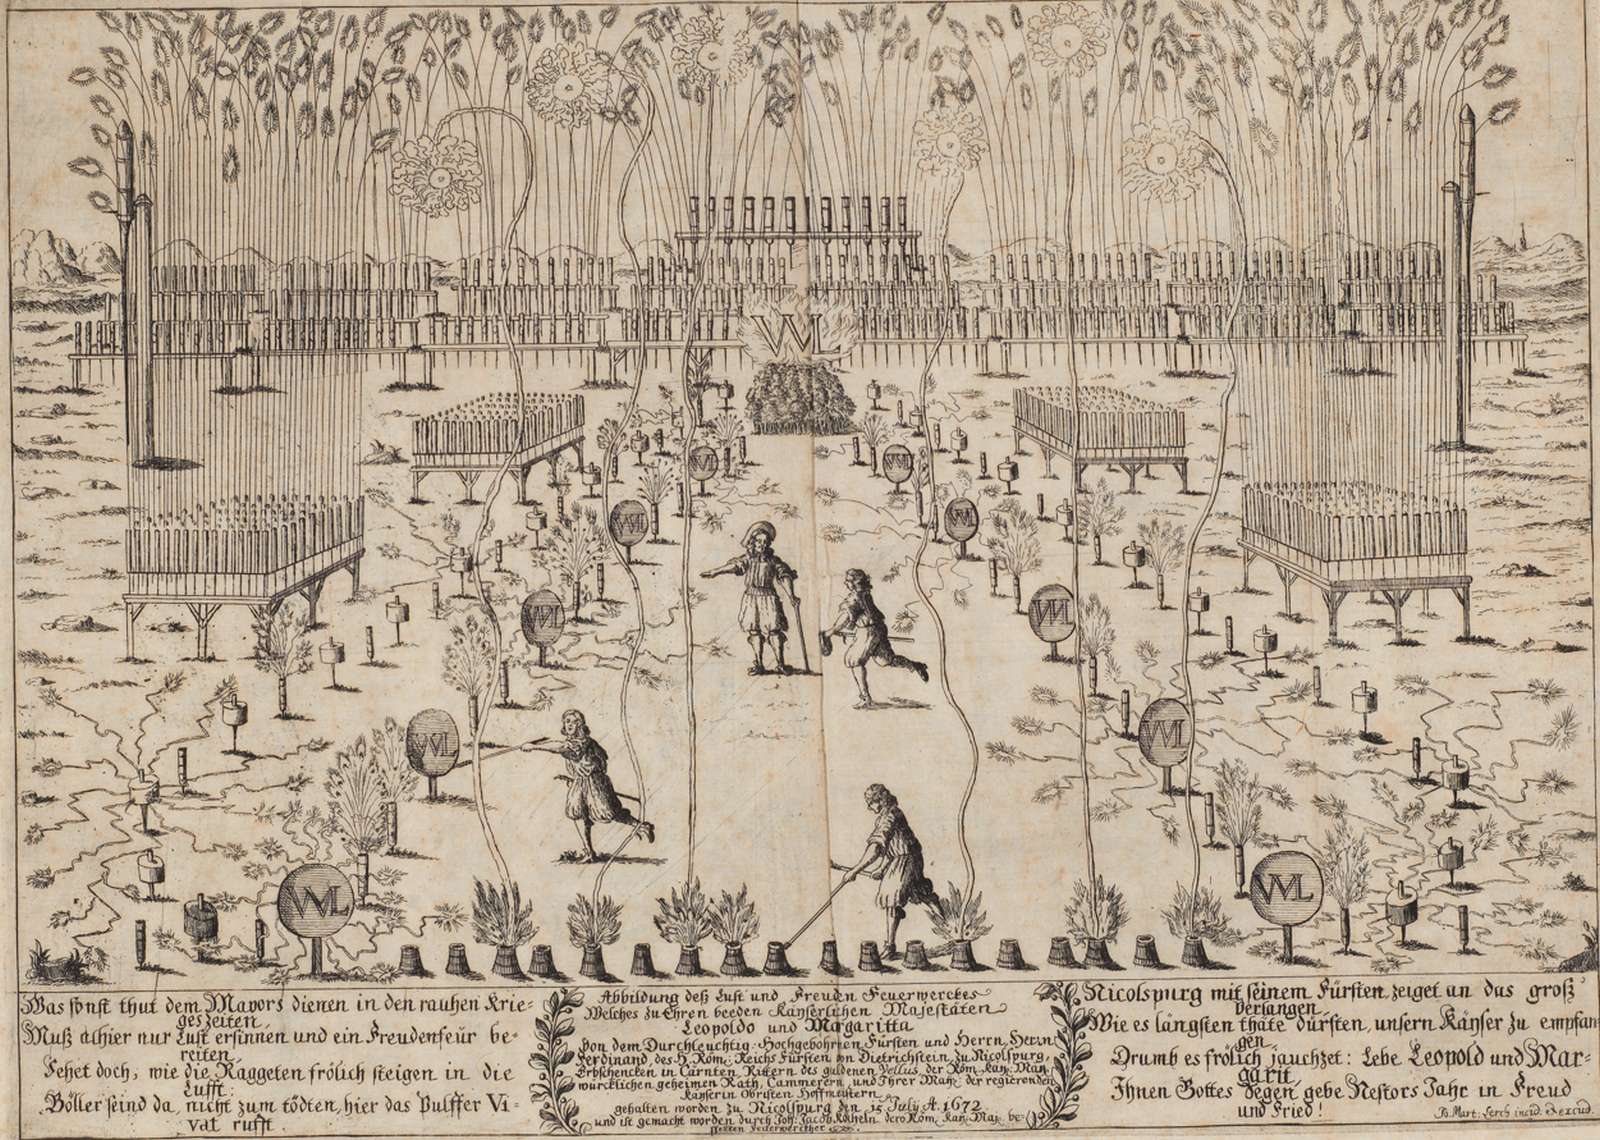 VVL
VVL
VVL
VVL
VVL
VVL
VVL
VVL
VVL
VVL
VVL
Was sonst thut dem Mavors dienen in den rauhen Krie-
ges zeiten,
Muß alhier nur Lust ersinnen und ein Freudenfeür be-
reiten,
Sehet doch, wie die Raggeten frölich steigen in die
Lufft:
Böller seind da, nicht zum tödten, hier das Pulffer Vi-
vat rufft.
Abbildung deß Lust und Freuden Feuerwerckes
Welches zu Ehren beeden Kaÿserlichen Majestäten
Leopoldo und Margaritta
Von dem Durchleuchtig-Hochgebohrnen Fürsten und Herrn, Herrn
Ferdinand, des H. Röm. Reichs Fürsten von Dietrichstein, zu Nicolspurg,
Erbschencken in Cärnten, Rittern des guldenen Vellus, der Röm. Kaÿ. Maÿ.
würcklichen geheimen Rath, Cammerern, und Ihrer Maÿ: der regierenden
Kaÿserin Obristen Hoffmeistern
gehalten worden zu Nicolspurg den 15 July A. 1672
und ist gemacht worden durch Joh: Jacob dero Röm. Kaÿ. Maÿ. be-
stelten Feuerwercker
Nicolspurg mit seinem Fürsten zeiget an das groß
Verlangen,
Wie es längsten thäte dürsten, unsern Käÿser zu empfan-
gen,
Drumb es frölich jauchzet: Lebe Leopold und Mar-
garit,
Ihnen Gottes Segen gebe Nestors Jahr in Freud
und Fried!
Jo. Mart: Lerch incid: et excud.